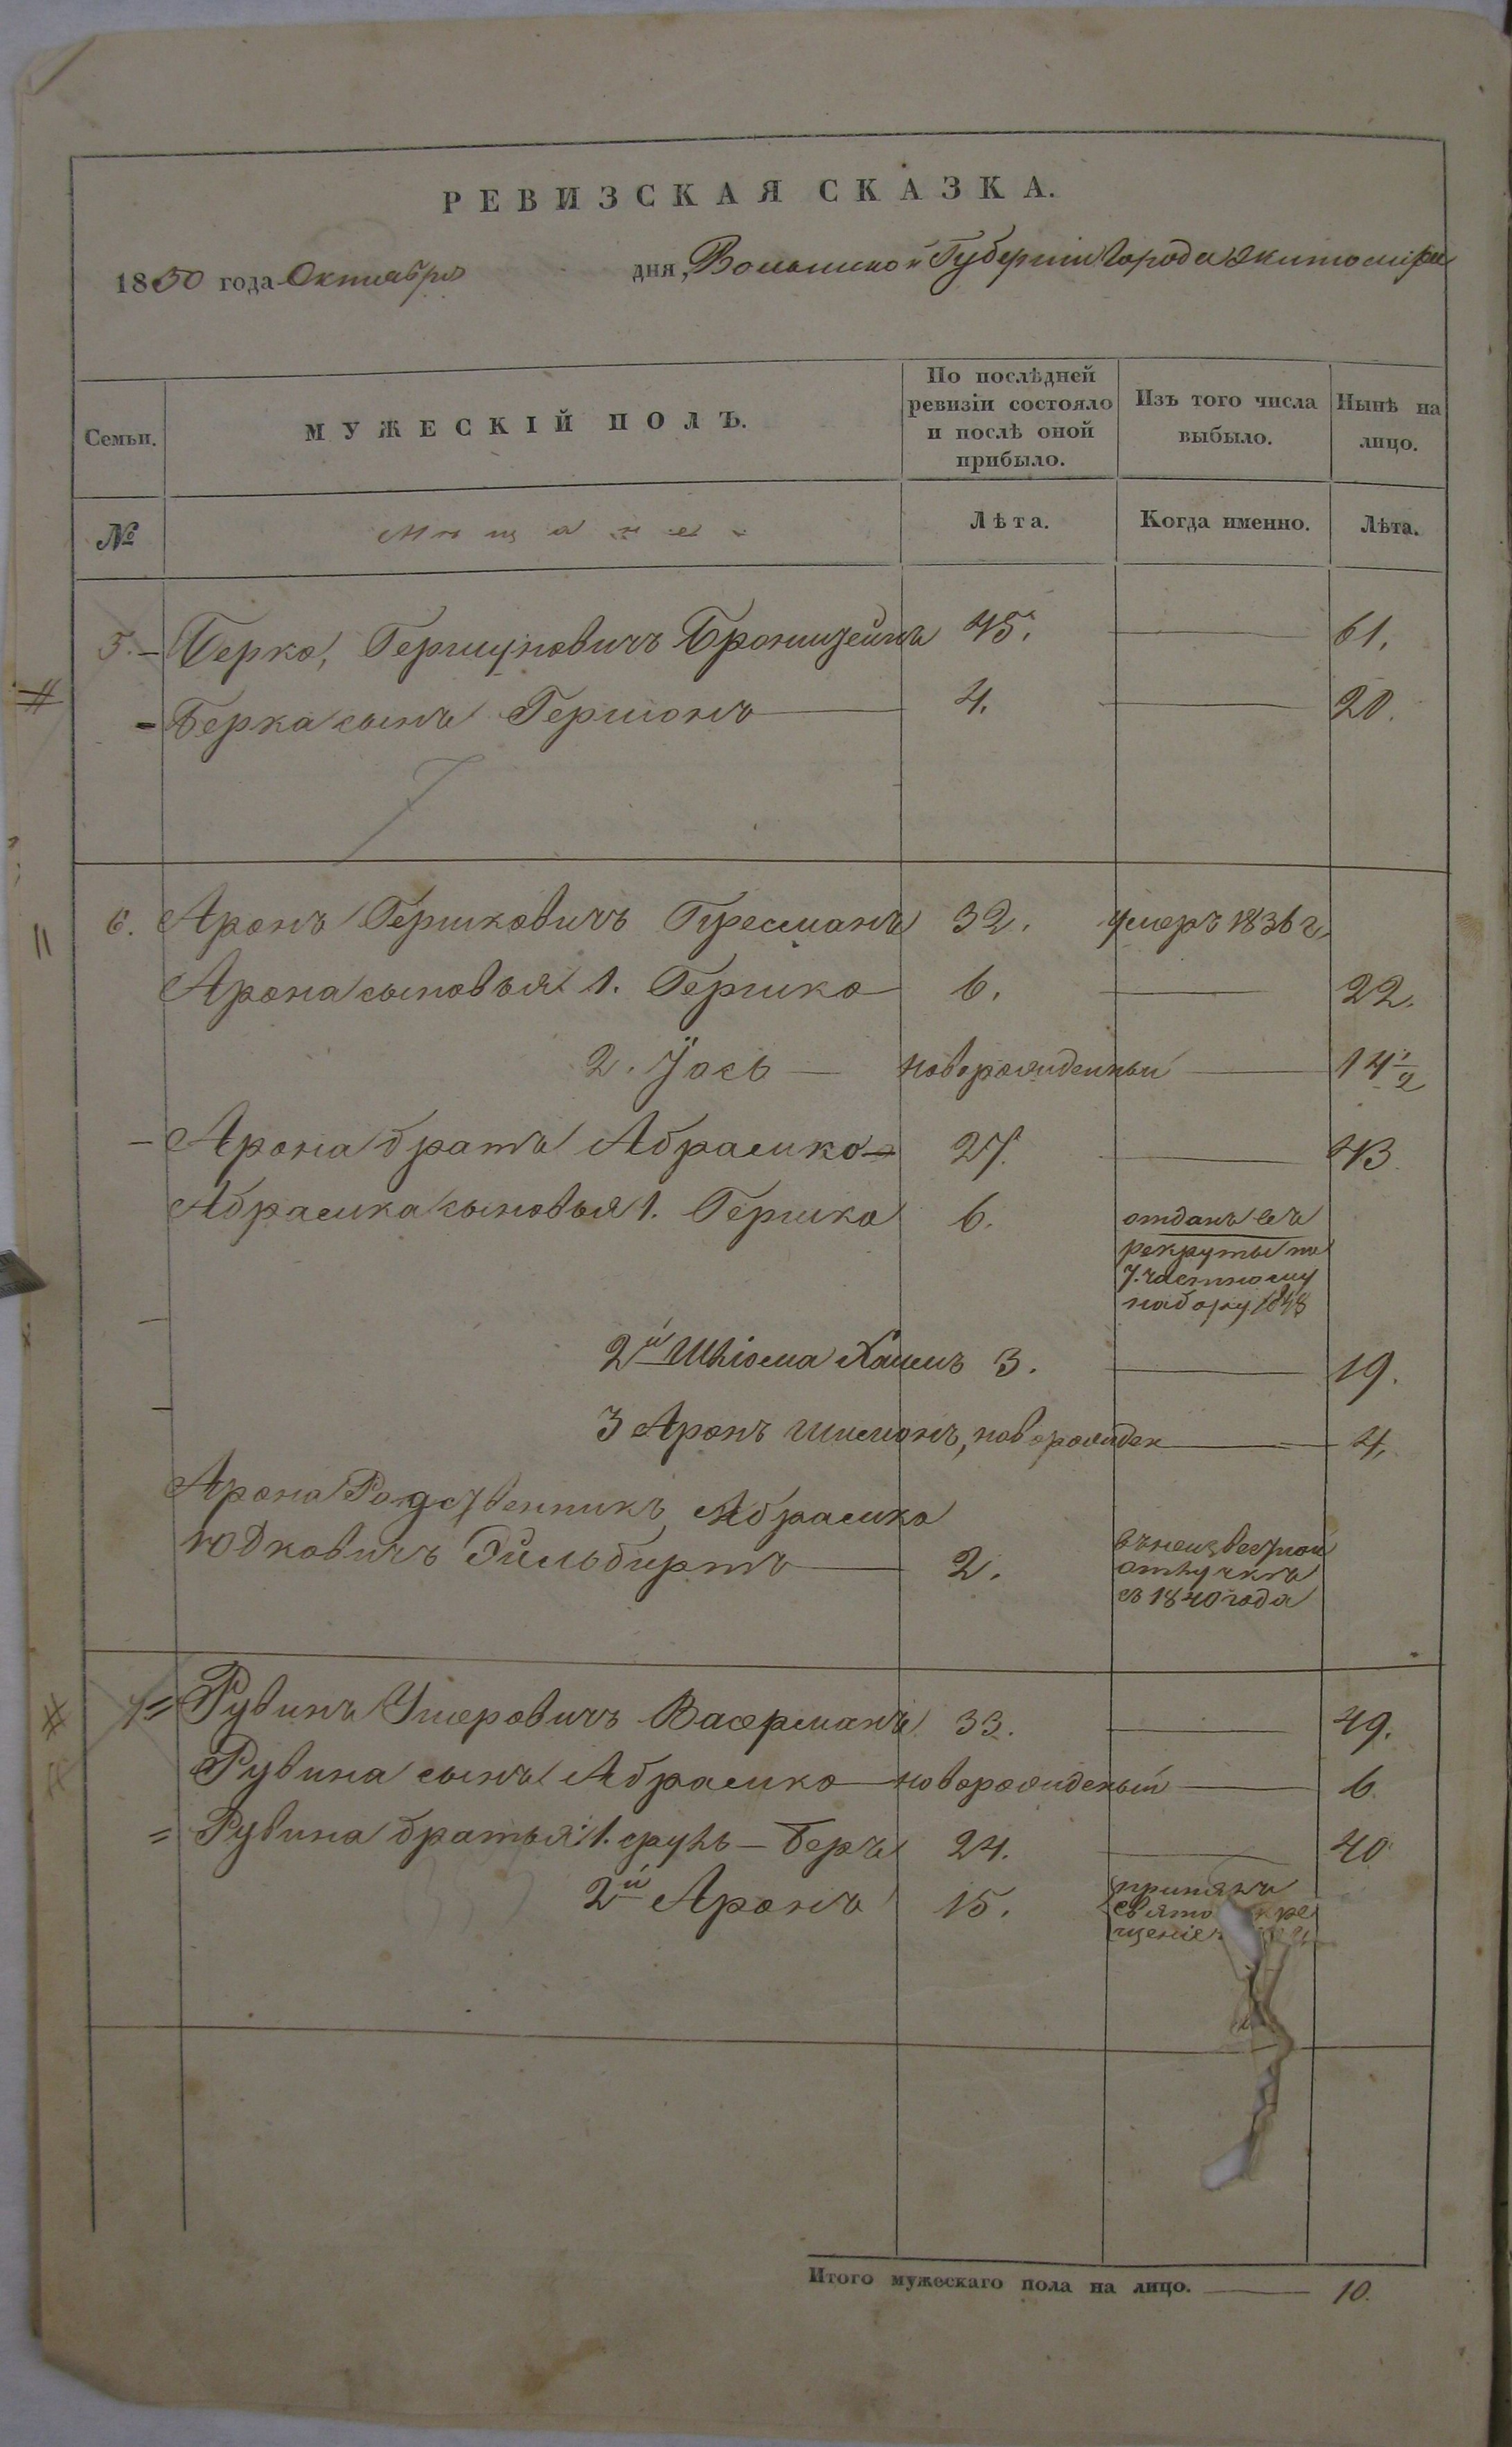 РЕВИЗСКАЯ СКАЗКА.
1850 года Октября дня, Волынской Губернiи Города Житомiра
Семьи. МУЖЕСКІЙ ПОЛЪ. По послѣдней ревизіи состояло и послѣ оной прибыло. Изъ того числа выбыло. Нынѣ на лицо.
№ Мѣщане Лѣта. Когда именно. Лѣта.
5. Берко, Гершуновичъ 45. — 61.
Берка сынъ Гершонъ — 4. — 20.
6. Аронъ Гершковичъ Пресманъ 32. умеръ 1836 г.
Арона сыновья 1. Гершко 6. — 22.
2. Іось — новорожденный — 14 1/2
Арона братъ Абрамко 27. — 43
Абрамка сыновья 1. Гершко 6. отданъ въ
рекруты по
7. частному
набору 1848
2й Шлiома Хаимъ 3. — 19.
3 Аронъ Шимонъ, новорожден — 4.
Арона Родственникъ Абрамко
Юдковичъ — 2. въ неизвестной
отлучкѣ
съ 1840 года
7 Рувинъ Ушеровичъ Васерманъ 33. — 49.
Рувина сынъ Абрамко новорожденый — 6.
Рувина братья: 1. сруль – Беръ 24. — 40
2й Аронъ 15. принялъ
свято кре
щеніе
Итого мужескаго пола на лицо. — 10.